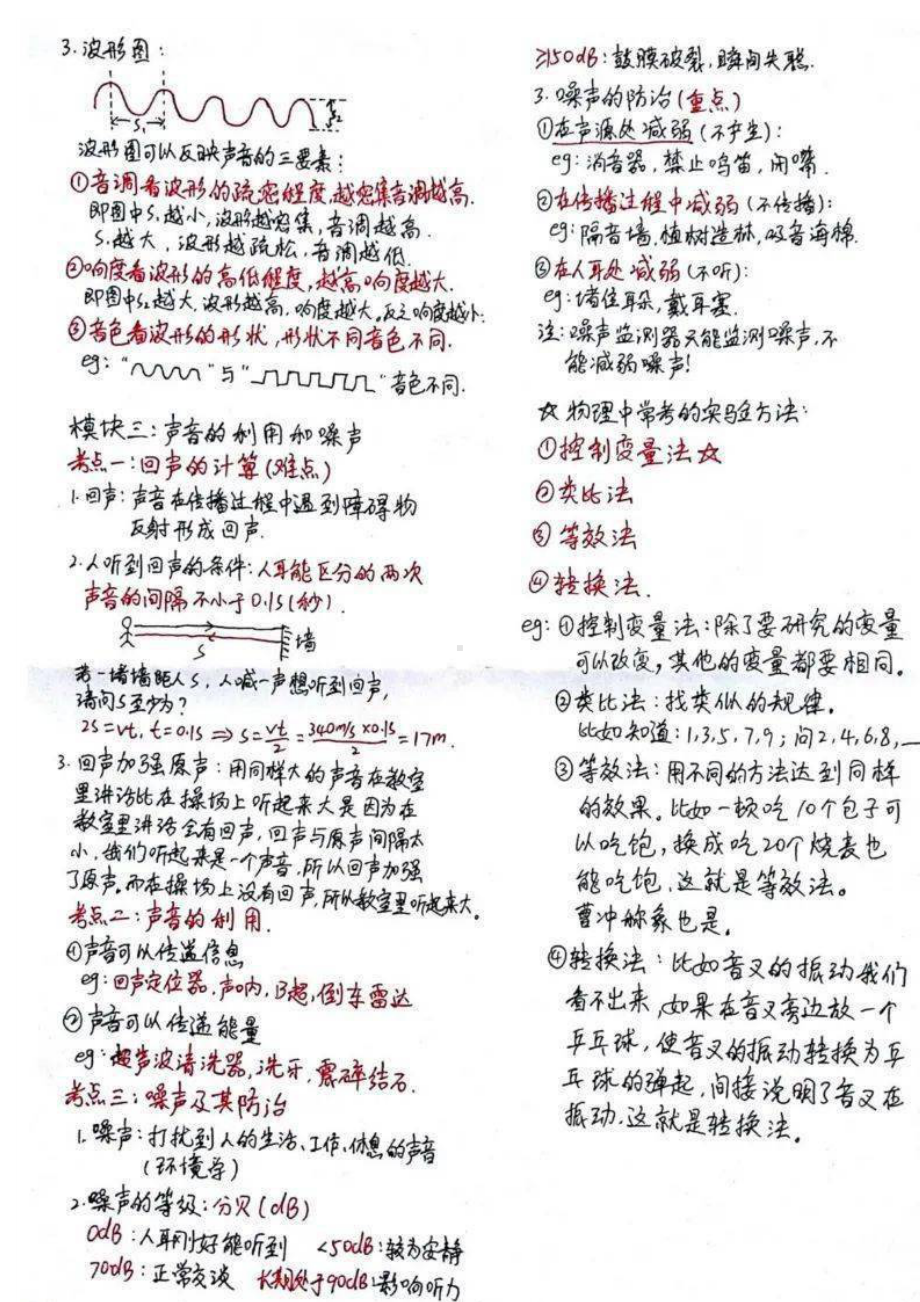 3.波形图:
S₁
S₂
波形图可以反映声音的三要素:
①音调看波形的疏密程度,越密集音调越高.
即图中S₁越小,波形越密集,音调越高.
S₁越大,波形越疏松,音调越低.
②响度看波形的高低程度,越高响度越大.
即图中S₂越大,波形越高,响度越大。反之响度越小.
③音色看波形的形状,形状不同音色不同.
eg:“ ”与“ ”音色不同.
模块三:声音的利用和噪声
考点一:回声的计算(难点)
1.回声:声音在传播过程中遇到障碍物
反射形成回声.
2.人听到回声的条件:人耳能区分的两次
声音的间隔不小于0.1s(秒).
S
墙
若一堵墙距人S,人喊一声想听到回声,
请问S至少为?
2S=vt, t=0.1s ⇒ S=vt/2=340m/s×0.1s/2=17m.
3.回声加强原声:用同样大的声音在教室
里讲话比在操场上听起来大是因为在
教室里讲话会有回声,回声与原声间隔太
小,我们听起来是一个声音,所以回声加强
了原声。而在操场上没有回声,所以教室里听起来大。
考点二:声音的利用.
①声音可以传递信息
eg:回声定位器,声呐,B超,倒车雷达
②声音可以传递能量
eg:超声波清洗器,洗牙,震碎结石.
考点三:噪声及其防治
1.噪声:打扰到人的生活、工作、休息的声音
(环境学)
2.噪声的等级:分贝(dB)
0dB:人耳刚好能听到 <50dB:较为安静
70dB:正常交谈 长期处于90dB:影响听力
≥150dB:鼓膜破裂,瞬间失聪.
3.噪声的防治(重点)
①在声源处减弱(不产生):
eg:消音器,禁止鸣笛,闭嘴.
②在传播过程中减弱(不传播):
eg:隔音墙,植树造林,吸音海棉.
③在人耳处减弱(不听):
eg:堵住耳朵,戴耳塞.
注:噪声监测器只能监测噪声,不
能减弱噪声!
☆物理中常考的实验方法:
①控制变量法☆
②类比法
③等效法
④转换法.
eg:①控制变量法:除了要研究的变量
可以改变,其他的变量都要相同。
②类比法:找类似的规律。
比如知道:1,3,5,7,9;问2,4,6,8,_
③等效法:用不同的方法达到同样
的效果。比如一顿吃10个包子可
以吃饱,换成吃20个烧麦也
能吃饱,这就是等效法。
曹冲称象也是。
④转换法:比如音叉的振动我们
看不出来,如果在音叉旁边放一个
乒乓球,使音叉的振动转换为乒
乓球的弹起,间接说明了音叉在
振动,这就是转换法。